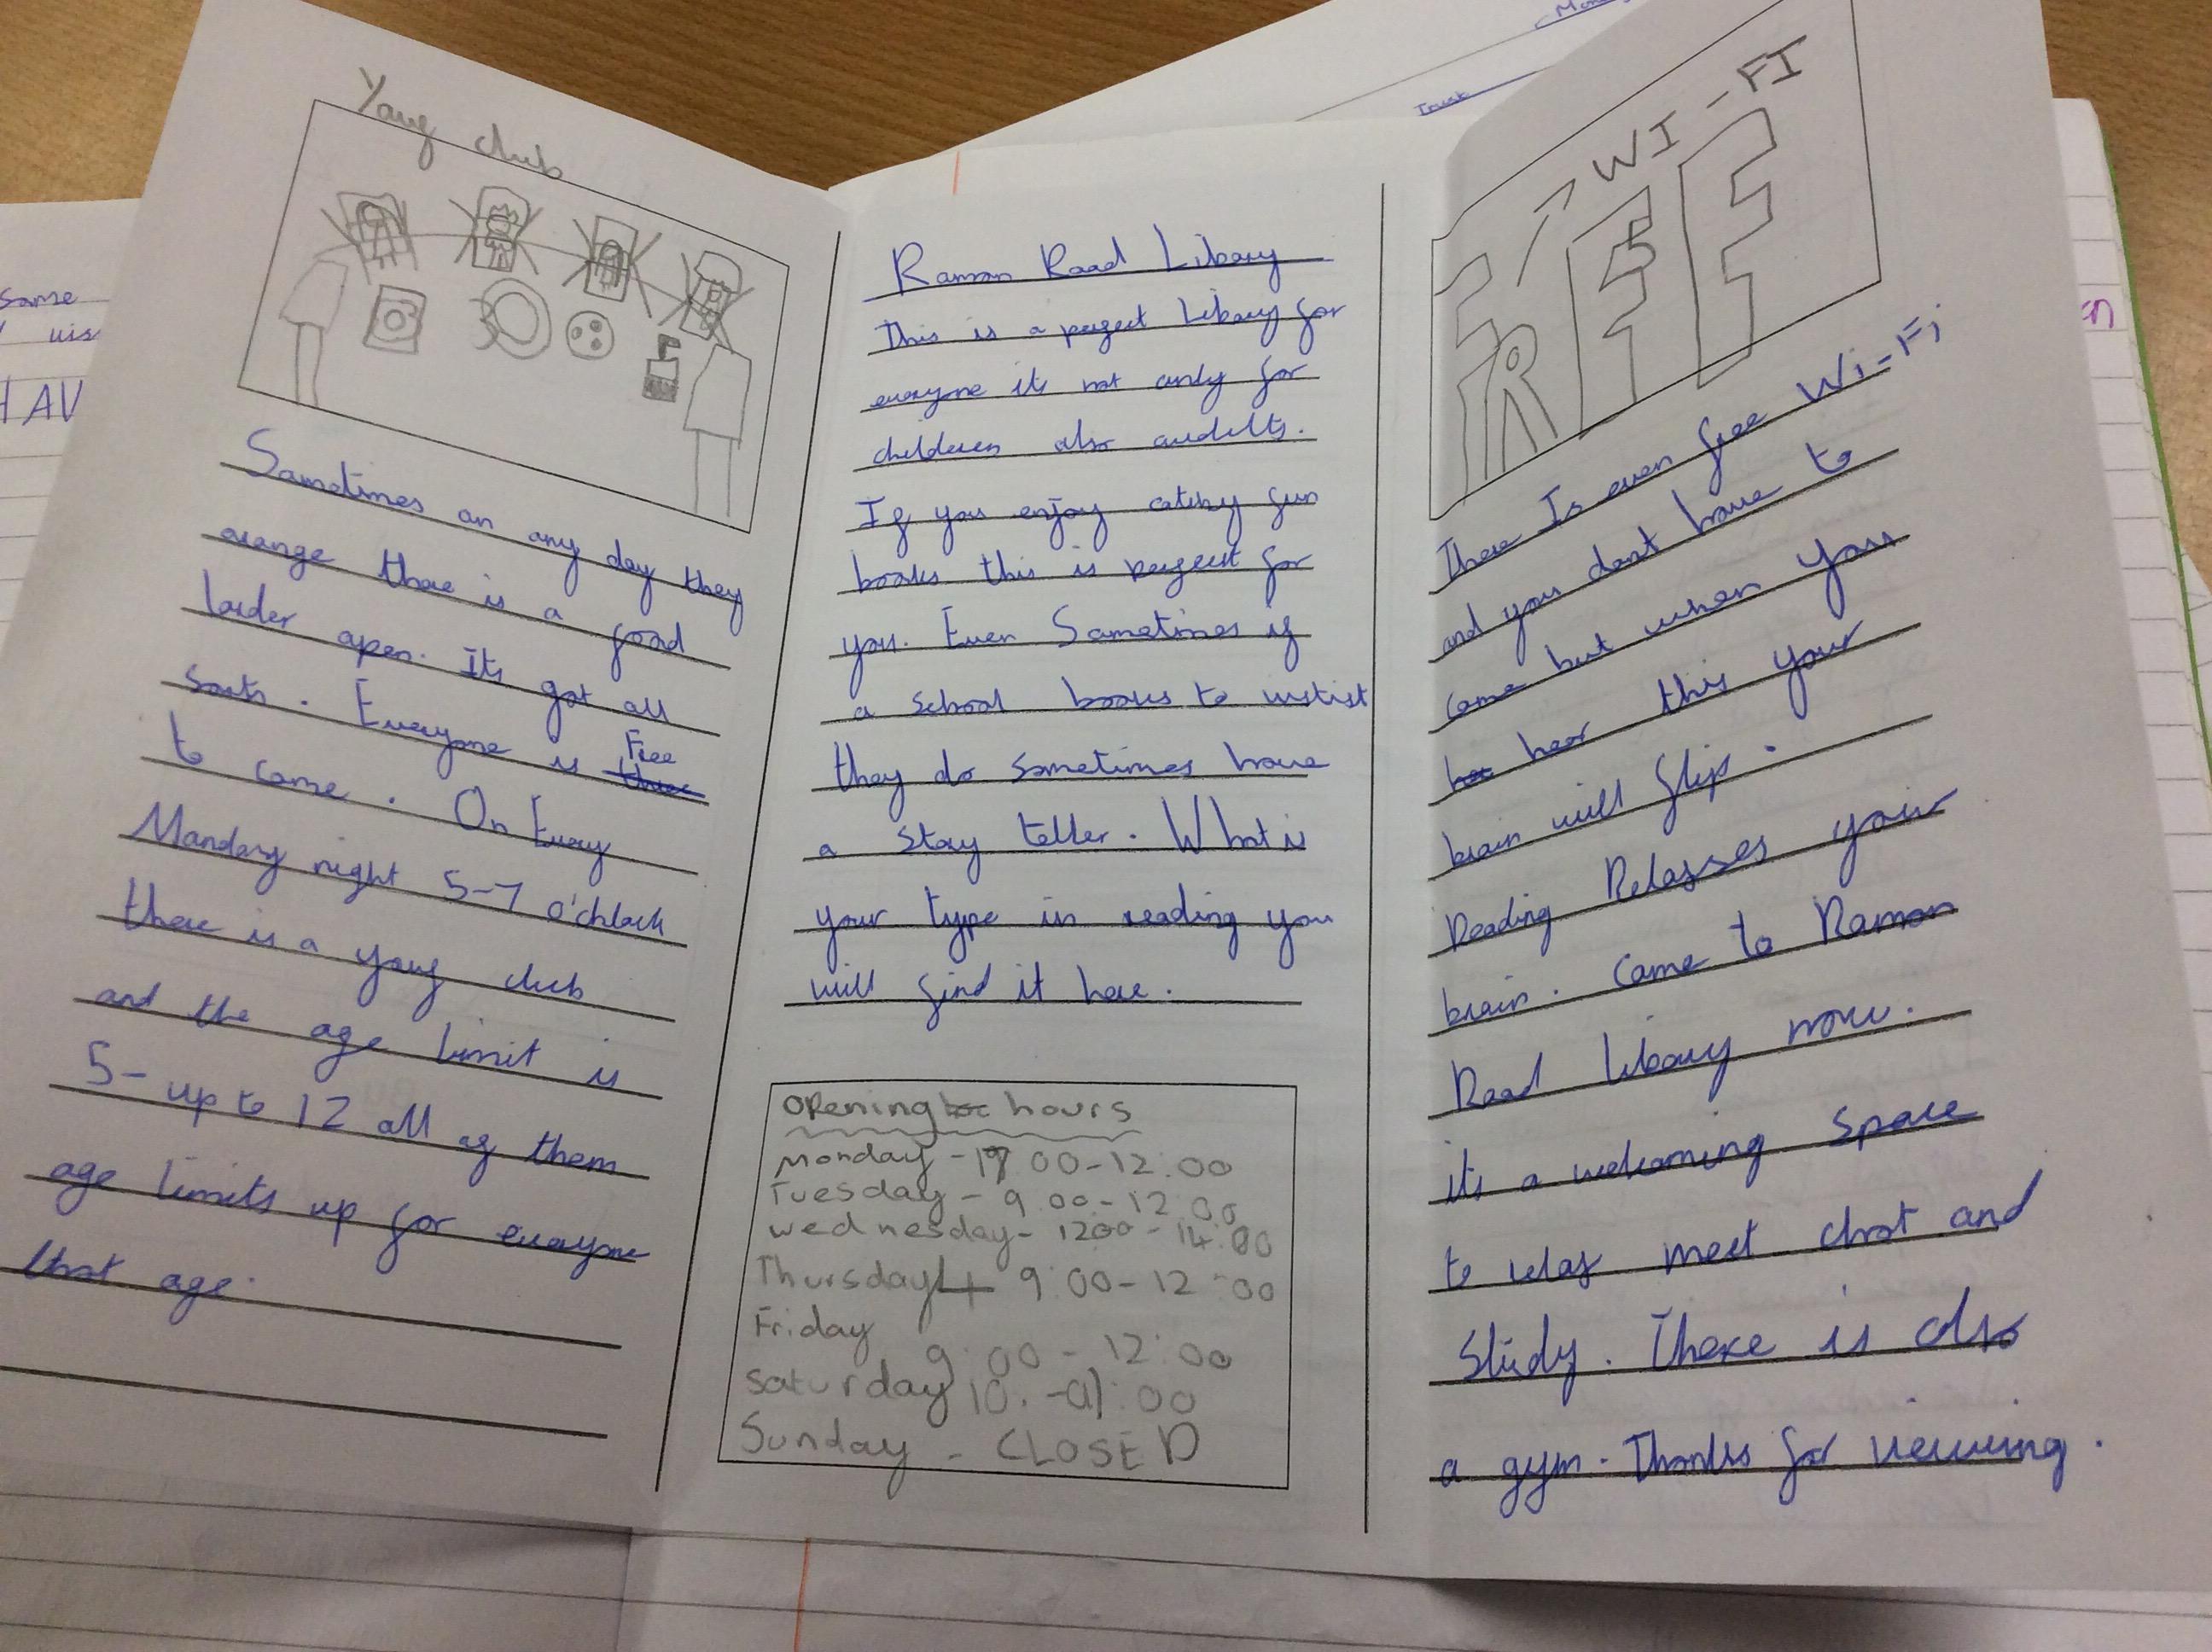 Yaug club
Sametimes an any day they
arange there is a food
larder apen. Its gat all
sorts. Everyone is Free
to came. On Every
Manday night 5-7 o'chlack
there is a yaug club
and the age limit is
5- up to 12 all of them
age limits up for everyone
that age.
Raman Road Libary
This is a perfect Libary for
everyone its not anly for
childeren also audelts.
If you enjoy catchy fun
books this is perfect for
you. Even Sametimes if
a school books to
they do sometimes have
a stay teller. What is
your type in reading you
will find it here.
Opening hours
Monday - 00-12:00
Tuesday - 9.00-12.00
wednesday - 1200-14:00
Thursday 9:00-12:00
Friday
9:00-12:00
saturday 10. :00
Sunday - CLOSED
WI-FI
FREE
There Is even free Wi-Fi
and you dant have to
came but when you
hear this your
brain will flip.
Reading Relaxses your
brain. Came to Raman
Road libary now.
its a welcaming space
to relax meet chat and
Study. There is also
a gym. Thanks for viewing.
same
HAV
Trust